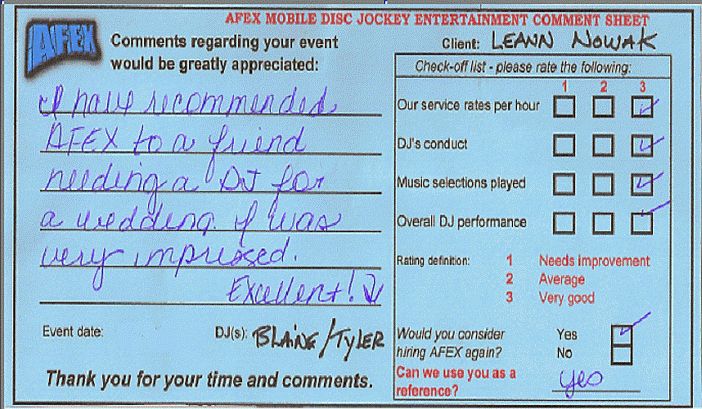 AFEX MOBILE DISC JOCKEY ENTERTAINMENT COMMENT SHEET
AFEX
Comments regarding your event
would be greatly appreciated:
I have recommended
AFEX to a friend
needing a DJ for
a wedding. I was
very impressed.
Excellent!
Event date:
DJ(s): BLAINE/TYLER
Thank you for your time and comments.
Client: LEANN NOWAK
Check-off list - please rate the following:
1 2 3
Our service rates per hour
DJ's conduct
Music selections played
Overall DJ performance
Rating definition: 1 Needs improvement
2 Average
3 Very good
Would you consider Yes
hiring AFEX again? No
Can we use you as a
reference? yes